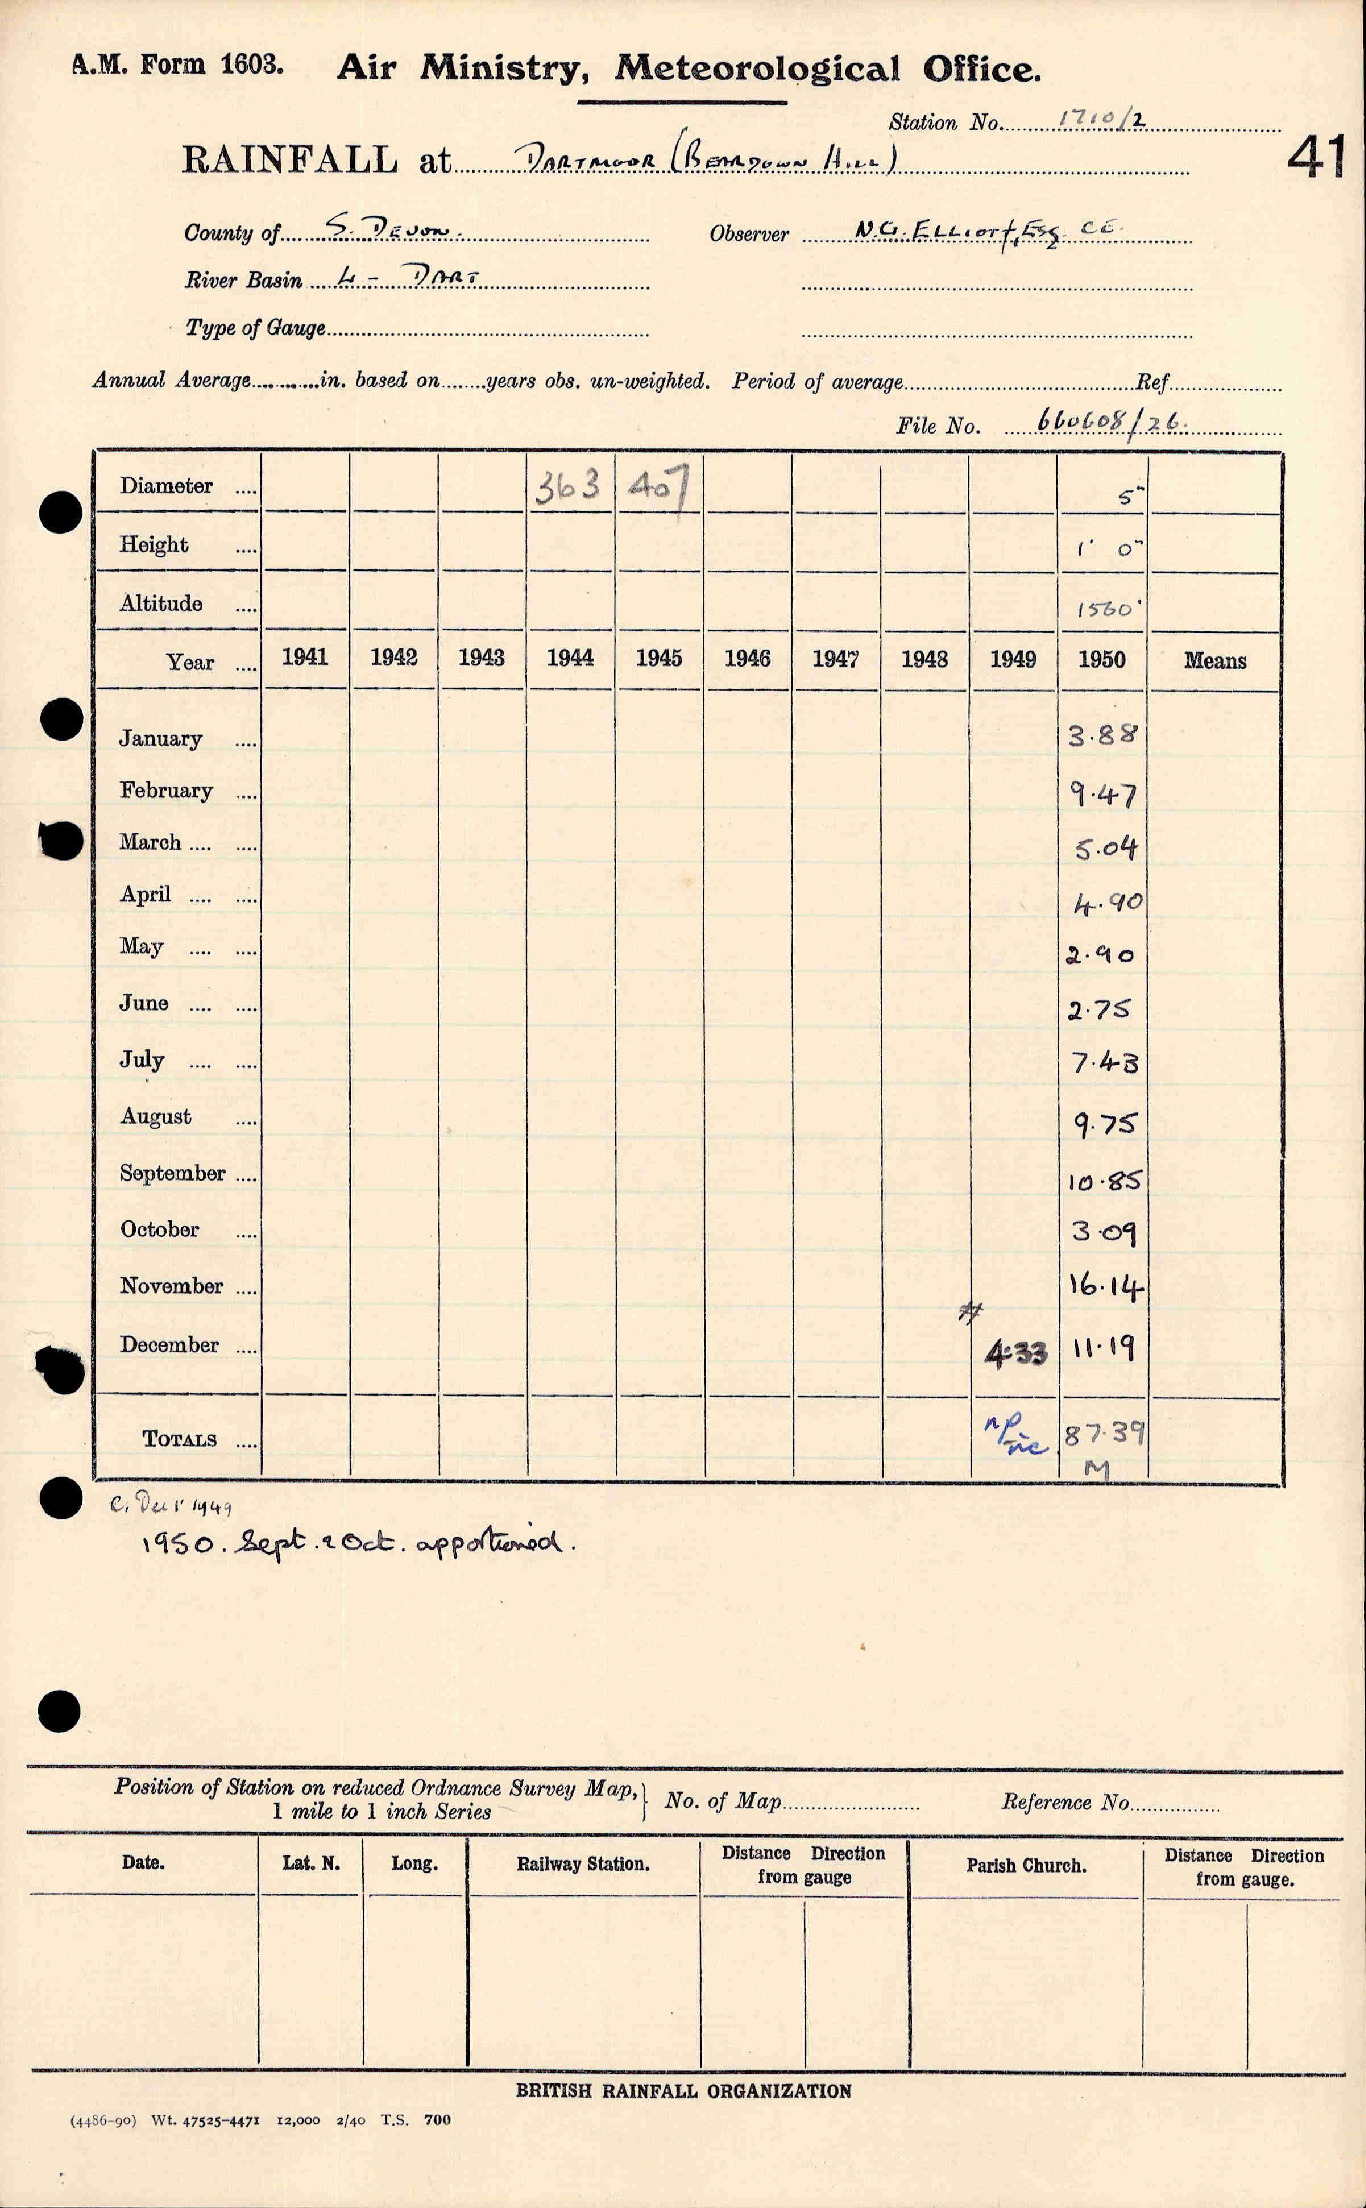 A.M. Form 1603. Air Ministry, Meteorological Office.
Station No. 1710/2
RAINFALL at DARTMOOR (BEARDOWN HILL)
41
County of S. DEVON. Observer N.G. ELLIOTT, Esq. CE.
River Basin 4 - DART
Type of Gauge
Annual Average in. based on years obs. un-weighted. Period of average Ref.
File No. 660608/26.
Diameter 363 407 5"
Height 1' 0"
Altitude 1560'
Year 1941 1942 1943 1944 1945 1946 1947 1948 1949 1950 Means
January 3.88
February 9.47
March 5.04
April 4.90
May 2.90
June 2.75
July 7.43
August 9.75
September 10.85
October 3.09
November 16.14
December 4.33 11.19
TOTALS 87.39
M
C. Dec 1' 1949
1950. Sept. & Oct. apportioned.
Position of Station on reduced Ordnance Survey Map, 1 mile to 1 inch Series No. of Map Reference No.
Date. Lat. N. Long. Railway Station. Distance Direction from gauge Parish Church. Distance Direction from gauge.
BRITISH RAINFALL ORGANIZATION
(4486-90) Wt. 47525-4471 12,000 2/40 T.S. 700